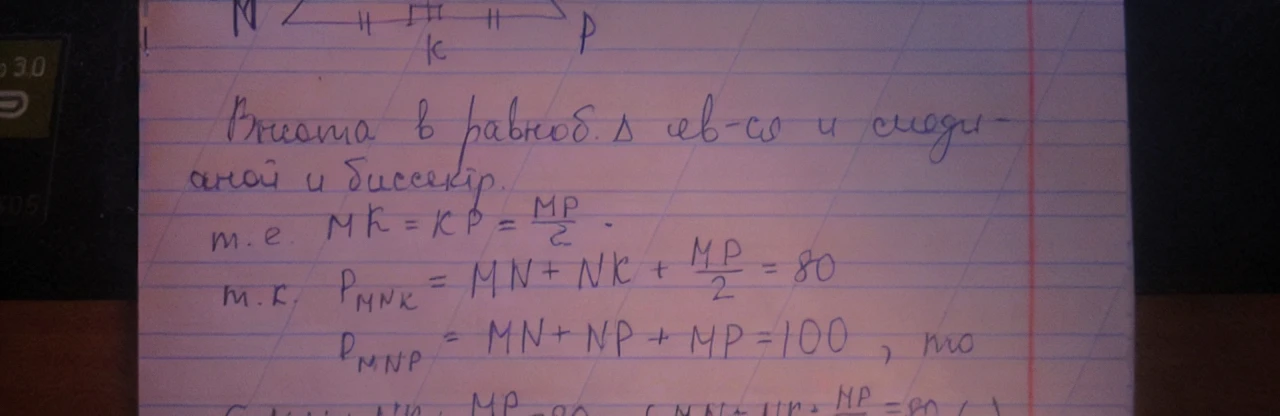 3.0
N
K
P
Высота в равноб. Δ яв-ся и меди-
аной и биссектр.
т.е. MK = KP = MP/2.
т.к. P_MNK = MN + NK + MP/2 = 80
P_MNP = MN + NP + MP = 100, то
MP
MP